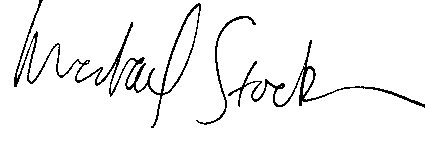 Michael Stock